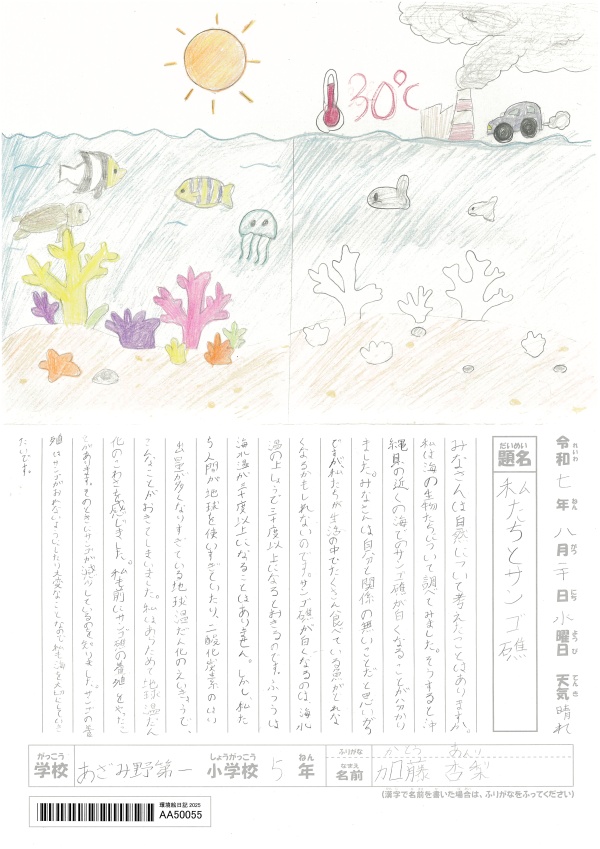 30℃
令和七年八月二十日水曜日 天気 晴れ
れいわ ねん がつ にち ようび てんき
だいめい
題名 私たちとサンゴ礁
みなさんは自然について考えたことはありますか。
私は海の生物たちについて調べてみました。そうすると沖
縄県の近くの海でのサンゴ礁が白くなることが分かり
ました。みなさんは自分と関係の無いことだと思いがち
ですが私たちが生活の中でたくさん食べている魚がとれな
くなるかもしれないのです。サンゴ礁が白くなるのは、海水
温の上しょうで三十度以上になるとおきるのです。ふつうは
海水温が三十度以上になることはありません。しかし、私た
ち人間が地球を使いすぎていたり、二酸化炭素のはい
出量が多くなりすぎている地球温だん化のえいきょうで、
こんなことがおきてしまいました。私はあらためて地球温だん
化のこわさを感じました。私も前にサンゴ礁の養殖をやったこ
とがあります。そのときにサンゴが減少しているのを知りました。サンゴの養
殖はサンゴがおれないようにしたり大変なことなので私も海を大切にしていき
たいです。
がっこう しょうがっこう ねん
学校 あざみ野第一 小学校 5 年
ふりがな かとう あんり
なまえ
名前 加藤 杏梨
(漢字で名前を書いた場合は、ふりがなをふってください)
環境絵日記 2025
AA50055